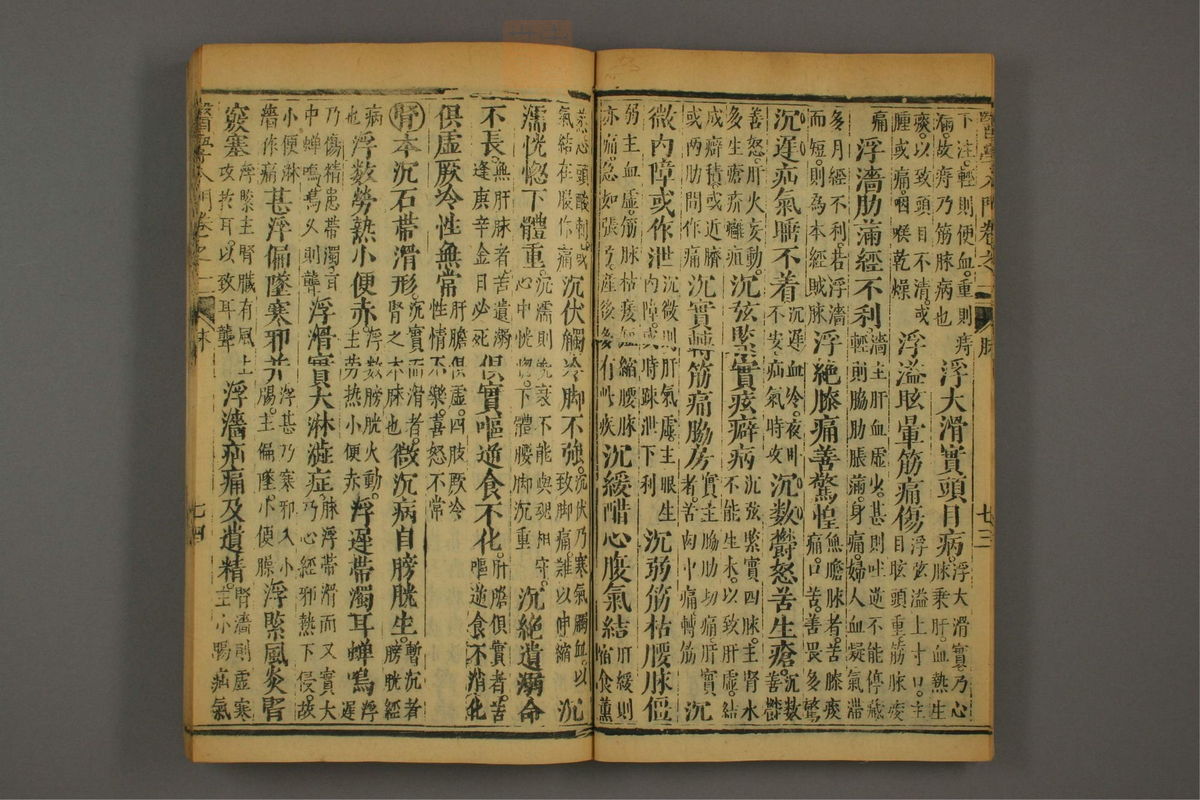 下注。輕則便血。重則痔
病。故痔乃筋脉病也
浮大滑實頭目病。
浮大滑實乃心
脉乘肝。血熱生
痰。以致頭目不清。或
腫或痛。咽喉乾燥
浮溢眩暈筋痛傷
浮溢上寸口。主
目眩頭重。筋脉痠
痛
浮濇肋滿經不利
濇主肝血虛少。甚則吐逆不能停藏
輕則脇肋脹滿。身痛。婦人血凝氣滯
多月經不利。若浮濇
而短。則為本經賊脉
浮絕膝痛善驚惶
無膽脉者。苦膝痠
痛。口苦。善畏多驚
沉遲疝氣睡不着
沉遲血冷。夜卧
不安。疝氣時攻
沉數欝怒苦生瘡。
沉數
善欝
善怒。肝火妄動。
多生瘡疥癰疽
沉弦緊實痃癖病
沉弦緊實四脉。主腎水
不能生木。以致肝虛。結
成癖積。或近臍
或兩肋間作痛
沉實轉筋痛脇房
實主脇肋切痛。肝實
者。苦肉中痛轉筋
沉
微內障或作泄
沉微則肝氣虛。主眼生
內障。或時踈泄下利
沉弱筋枯腰脉僵
弱主血虛。筋脉枯痿短縮腰脉
亦痛。急如張弓。產後多有此疾
沉緩醋心腹氣結
肝緩則
縮食薰
蒸心頭酸刺。或
氣結在腹作痛
沉伏觸冷脚不強。
沉伏乃寒氣觸血。以
致脚痛。難以伸縮
沉
濡恍惚下體重。
沉濡則衰不能與魂相守。
心中恍惚。下體腰脚沉重
沉絕遺溺命
不長。
無肝脉者。苦遺溺
逢庚辛金日必死
俱實嘔逆食不化。
肝膽俱實者。苦
嘔逆食不消化
俱虛厥冷性無常
肝膽俱虛。四肢厥冷
性情不樂。喜怒不常
腎本沉石帶滑形。
沉實而滑者。
腎之本脉也
微沉病自膀胱生。
暫沉者
膀胱經
病
也
浮數勞熱小便赤。
浮數膀胱火動。
主勞熱小便赤
浮遲帶濁耳蟬鳴
浮
遲
乃傷精患帶濁。耳
中蟬鳴。為久則聾
浮滑實大淋澁症
脉浮帶滑而又實大
乃心經邪熱下侵。故
小便淋
濇作痛
甚浮偏墜寒邪并
浮甚乃寒邪入小
腸。主偏墜。小便臊
浮緊風炎腎
竅塞
浮緊主腎臟有風。上
攻於耳。以致耳聾
浮濇疝痛及遺精。
腎濇則虛寒
主小腸疝氣
醫學入門卷之一
七四